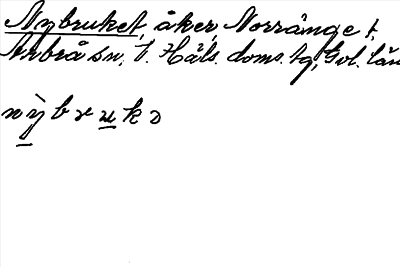 Nybruket, åker, Norränge t.
Arbrå sn, V. Häls. doms. tg, Gvl. län
nỳbrukə